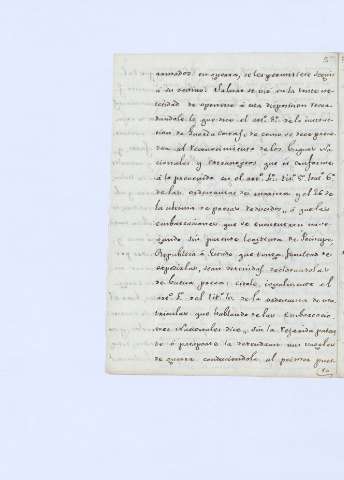 5
armados en guerra, se les permitiese seguir
á su destino: Salazar se vió en la triste ne-
cesidad de oponerse á esta disposicion
lo que dice el artº. 8º. de la instruc-
cion de Guarda Costas, de como se debe proce-
der al reconocimiento de los buques Na-
cionales y extrangeros que es conforme
á lo prevenido en el artº. titº. 5º. tratº. 6º.
de las ordenanzas de marina y el 26 de
la ultima de presas deducidos, á que las
embarcaciones que se encuentren nave-
gando sin patente legitima de Principe
Republica ó Estado que tenga facultad de
expedirlas, sean detenidas
de buena presa: citole, igualmente el
artº. del titº. de la ordenanza de ma-
triculas que hablando de las embarcacio-
nes Nacionales dice, sin la referida paten-
te ó pasaporte la detendran mis bageles
de guerra conduciendola al proximo puer-
to